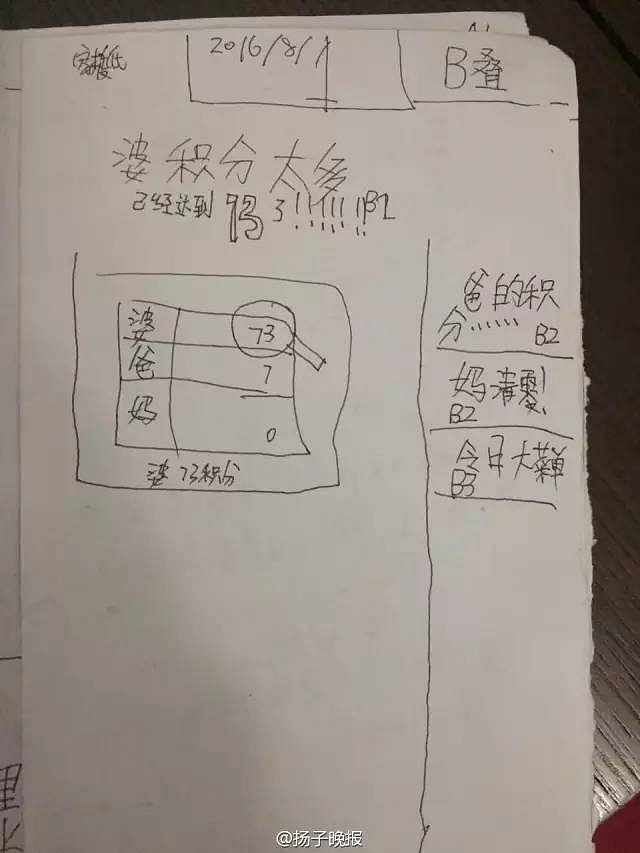 2016/8/1
B叠
婆积分太多
已经达到73了!!!!!!B2
婆 73
爸 7
妈 0
婆 73积分
爸的积
分…… B2
妈清零!
B2
今日大菜单
B3
里
@扬子晚报